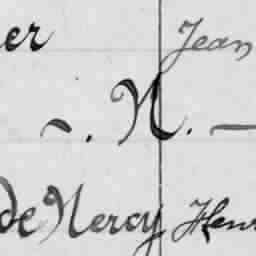 er Jean
~. N. —
de Nercy Henr